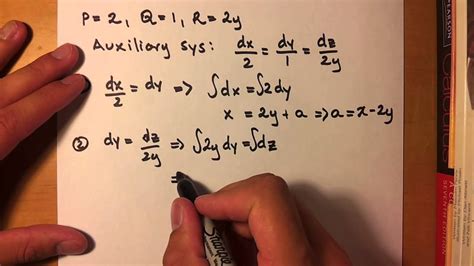 P = 2, Q = 1, R = 2y
Auxiliary sys: dx/2 = dy/1 = dz/2y
dx/2 = dy => ∫dx = ∫2dy
x = 2y + a => a = x - 2y
② dy = dz/2y => ∫2y dy = ∫dz
=
Sharpie
PEARSON
Calculus
SEVENTH EDITION